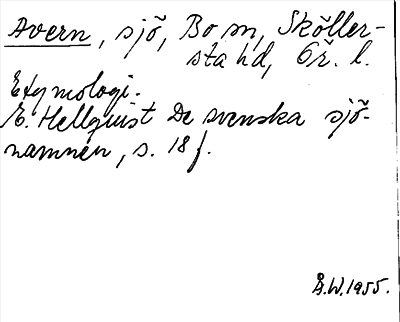 Avern, sjö, Bo sn, Sköller-
sta hd, Ör. l.
Etymologi.
E. Hellquist De svenska sjö-
namnen, s. 18 f.
Å.W. 1955.